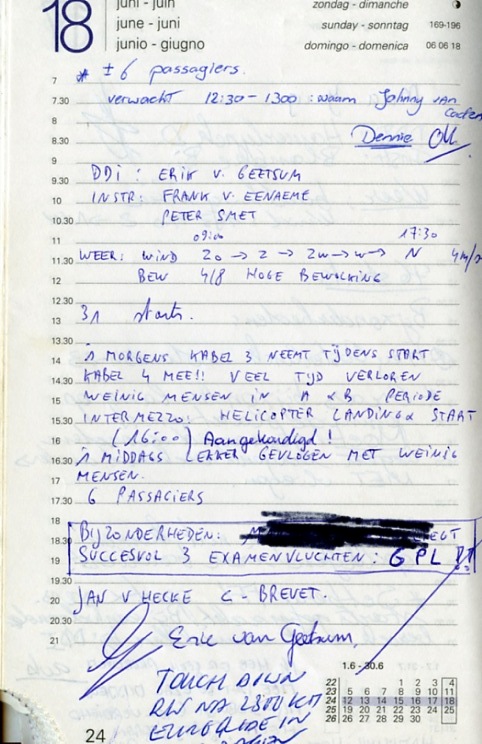 18
juni - juin
june - juni
junio - giugno
zondag - dimanche
sunday - sonntag 169-196
domingo - domenica 06 06 18
7 * ± 6 passagiers.
7.30 verwacht 12:30 - 1300 : naam Johnny van
8
8.30 Dennie OK
9 DDI : ERIK V. GEETSUM
9.30
10 INSTR: FRANK V. EENAEME
10.30 PETER SMET
11 09:00 17:30
11.30 WEER: WIND ZO → Z → ZW → W → N 4m/s
12 BEW 4/8 HOGE BEWOLKING
12.30
13 31 starts.
13.30
14 'S MORGENS KABEL 3 NEEMT TIJDENS START
14.30 KABEL 4 MEE!! VEEL TIJD VERLOREN
15 WEINIG MENSEN IN A & B PERIODE
15.30 INTERMEZZO: HELICOPTER LANDING & START
16 (16:00) Aangekondigd !
16.30 'S MIDDAGS LEKKER GEVLOGEN MET WEINIG
17 MENSEN.
17.30 6 PASSAGIERS
18
18.30 BIJZONDERHEDEN: EGT
19 SUCCESVOL 3 EXAMENVLUCHTEN: GPL
19.30
20 JAN V HECKE C - BREVET.
20.30
21 Eric van Geetsum,
TOUCH DOWN
RW NA 2300 KM
IN
1.6 - 30.6
22 1 2 3 4
23 5 6 7 8 9 10 11
24 12 13 14 15 16 17 18
25 19 20 21 22 23 24 25
26 26 27 28 29 30
24